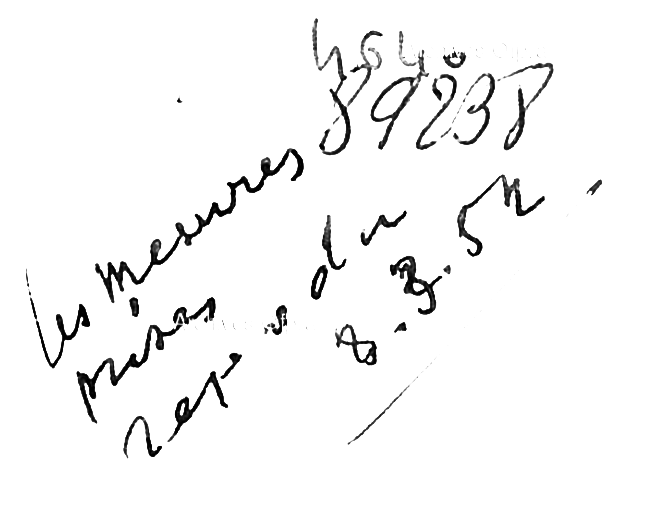 4640
89238
Les mesures
prises
du
8.3.52